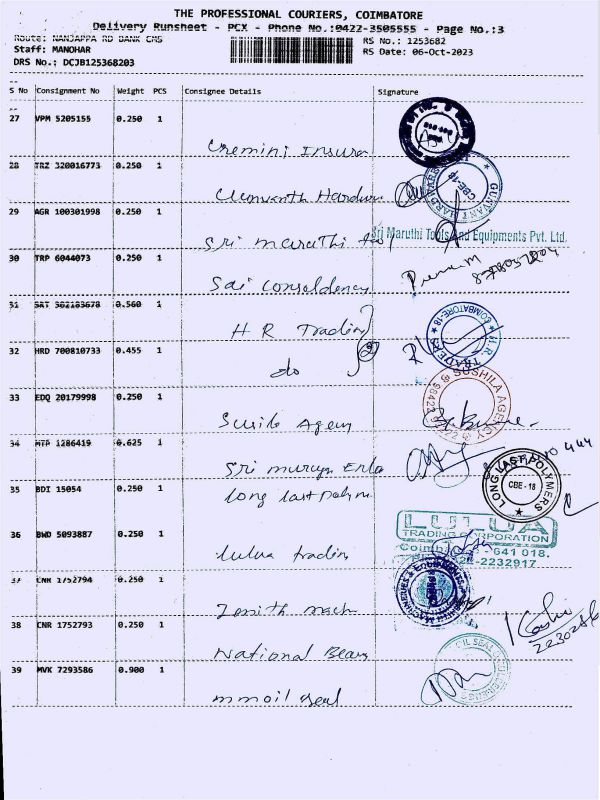 THE PROFESSIONAL COURIERS, COIMBATORE
Delivery Runsheet - PCX - Phone No.:0422-3505555 - Page No.:3
Route: NANJAPPA RD BANK CMS
RS No.: 1253682
Staff: MANOHAR
RS Date: 06-Oct-2023
DRS No.: DCJB125368203
S No Consignment No Weight PCS Consignee Details Signature
27 VPM 5205155 0.250 1
Gemini Insura
28 TRZ 320016773 0.250 1
Gunvanth Hardwar
GUNVANT HARDWARE
CBE-18
29 AGR 100301998 0.250 1
Sri maruthi tool
Sri Maruthi Tools And Equipments Pvt. Ltd.
30 TRP 6044073 0.250 1
Sai Consoldency
31 SRT 302183678 0.560 1
H R Trading
H.R. TRADERS
COIMBATORE-18
32 HRD 700810733 0.455 1
do
2
33 EDQ 20179998 0.250 1
Susila Agency
SUSHILA AGENCY
34 MTP 1286419 0.625 1
Sri muruga
35 BDI 15054 0.250 1
long last polym
LONG LAST POLYMERS
CBE - 18
36 BWD 5093887 0.250 1
lulua trading
LULUA
TRADING CORPORATION
641 018.
2232917
37 CNR 1752794 0.250 1
Zenith mach
38 CNR 1752793 0.250 1
National Bear
39 MVK 7293586 0.900 1
mm oil seal